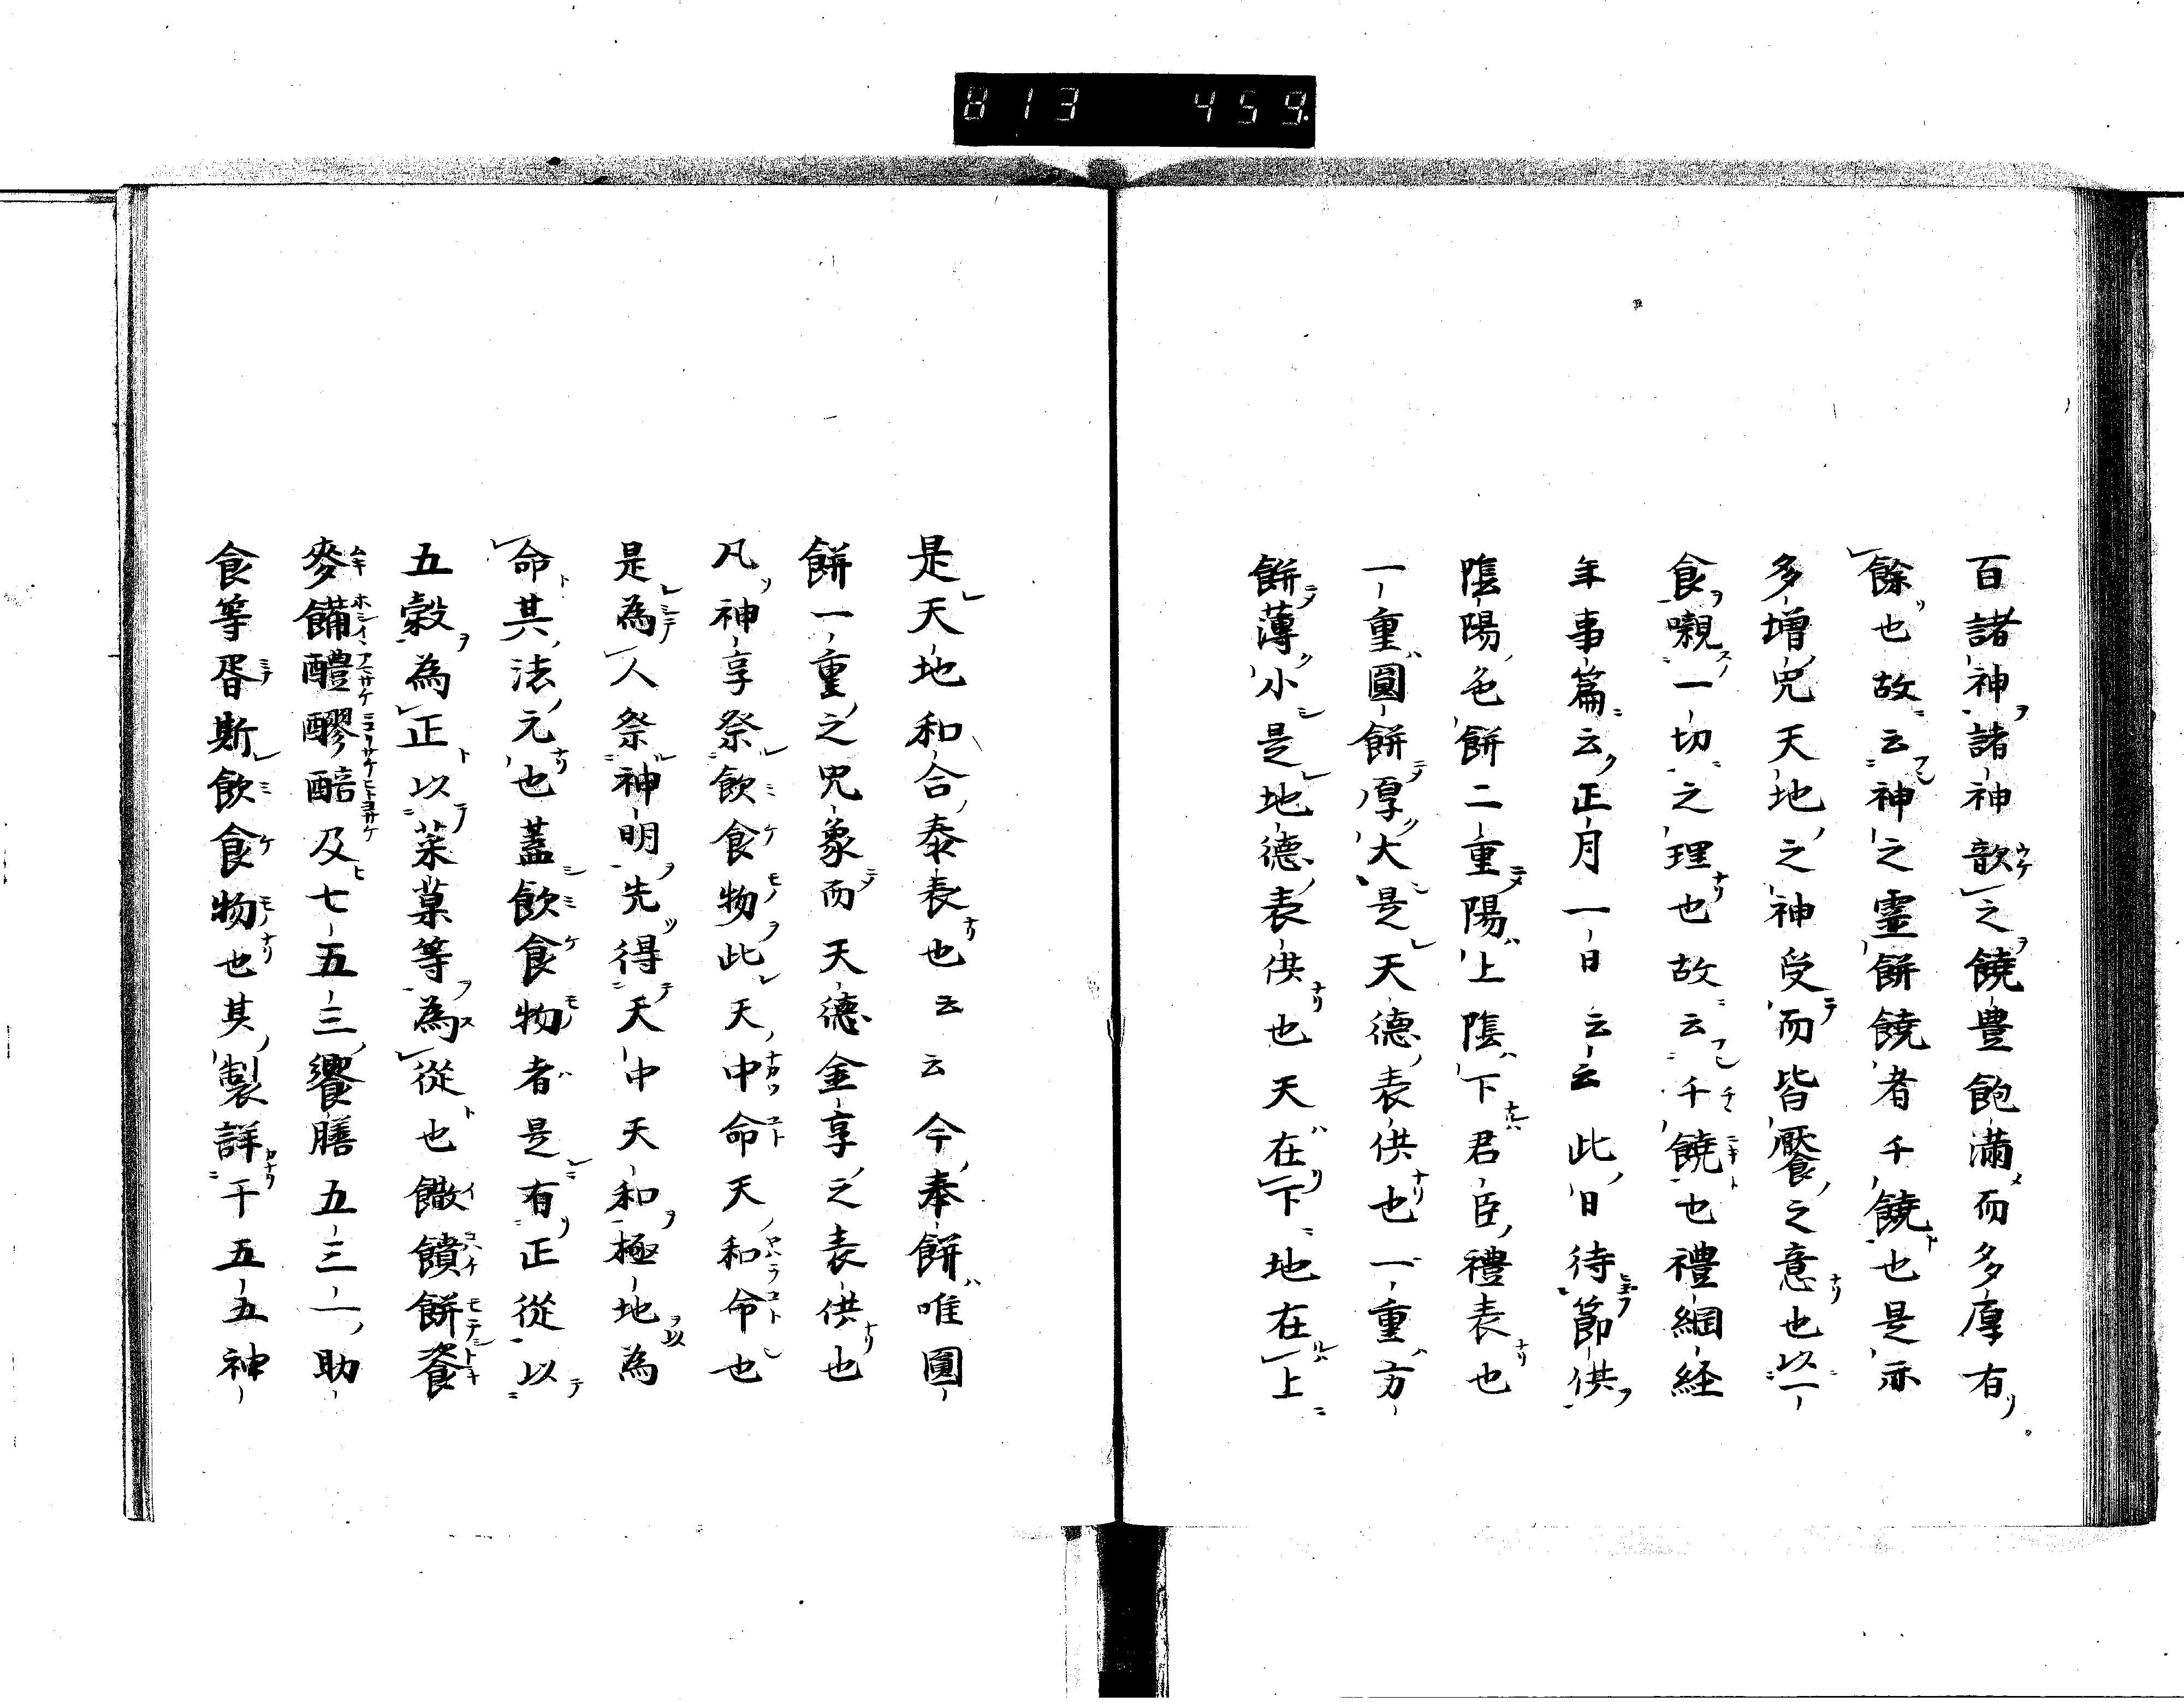 813 459
百諸神諸神歆之饒豊飽滿而多厚有
餘也故云神之霊餅饒者千饒也是示
多增皃天地之神受而皆饜之意也以一
食嚫一切之理也故云千饒也禮綱経
年事篇云正月一日云云此日待節供
陰陽色餅二重陽上陰下君臣禮表也
一重圓餅厚大是天德表供也一重方
餅薄小是地德表供也天在下地在上
是天地和合泰表也云云今奉餅唯圓
餅一重之皃象而天德金享之表供也
凡神享祭飲食物此天中命天和命也
是為人祭神明先得天中天和極地為
命其法元也蓋飲食物者是有正從以
五穀為正以菜菓等為從也饊饙餅餈
麥餔醴醪醅及七五三饗膳五三一助
食等胥斯飲食物也其製詳于五五神